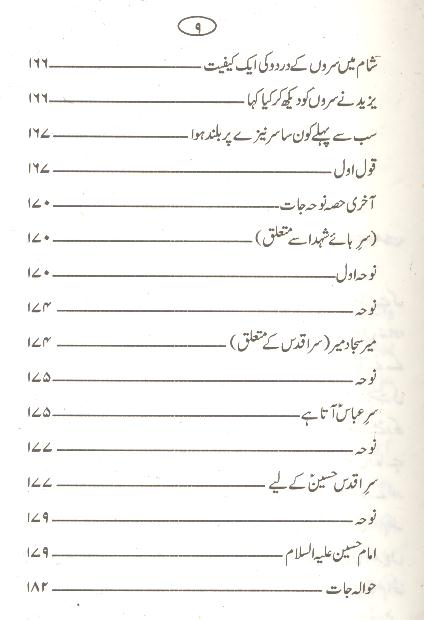 ۹
شام میں سروں کے درود کی ایک کیفیت ۱۶۶
یزید نے سروں کو دیکھ کر کیا کہا ۱۶۶
سب سے پہلے کون سا سر نیزے پر بلند ہوا ۱۶۷
قول اول ۱۶۷
آخری حصہ نوحہ جات ۱۷۰
(سرِ ہائے شہدا سے متعلق) ۱۷۰
نوحہ اول ۱۷۰
نوحہ ۱۷۴
میر سجاد میر (سر اقدس کے متعلق) ۱۷۴
نوحہ ۱۷۵
سرِ عباسؑ آتا ہے ۱۷۵
نوحہ ۱۷۷
سرِ اقدس حسینؑ کے لیے ۱۷۷
نوحہ ۱۷۹
امام حسین علیہ السلام ۱۷۹
حوالہ جات ۱۸۲